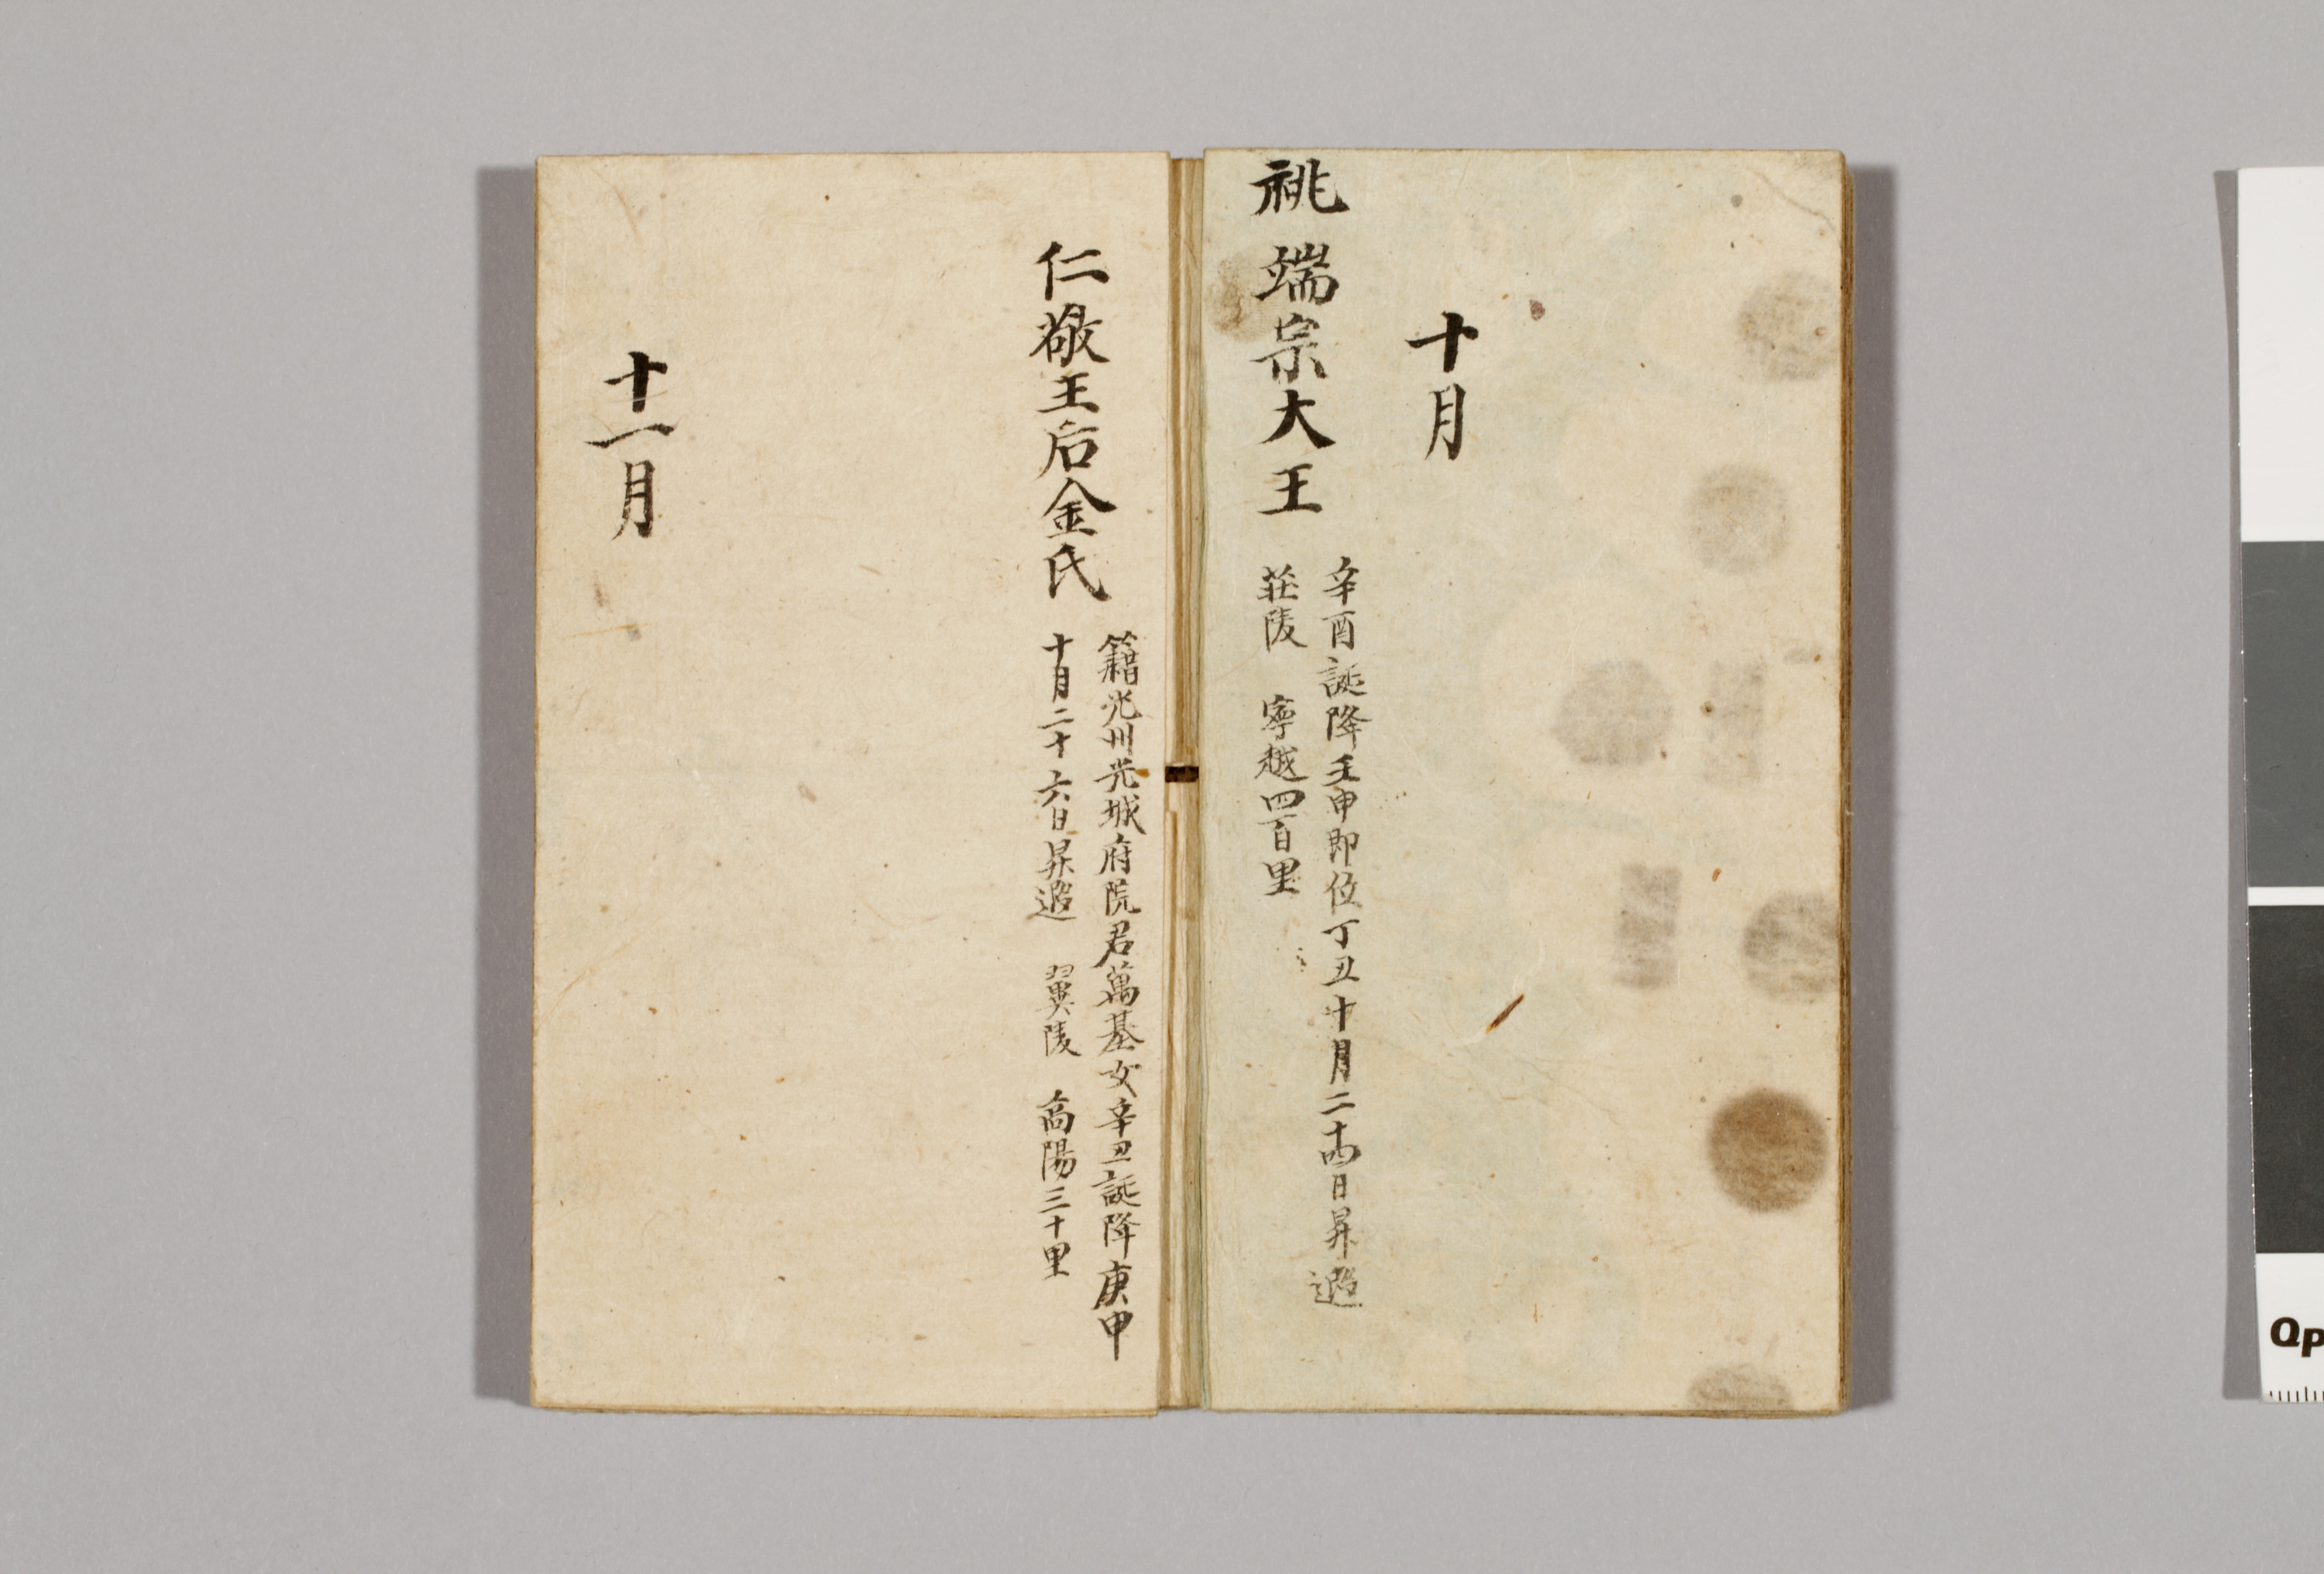 十月
祧 端宗大王
辛酉誕降壬申即位丁丑十月二十四日昇遐
莊陵 寧越四百里
仁敬王后金氏
籍光州光城府院君萬基女辛丑誕降庚申
十月二十六日昇遐 翼陵 高陽三十里
十一月
QP